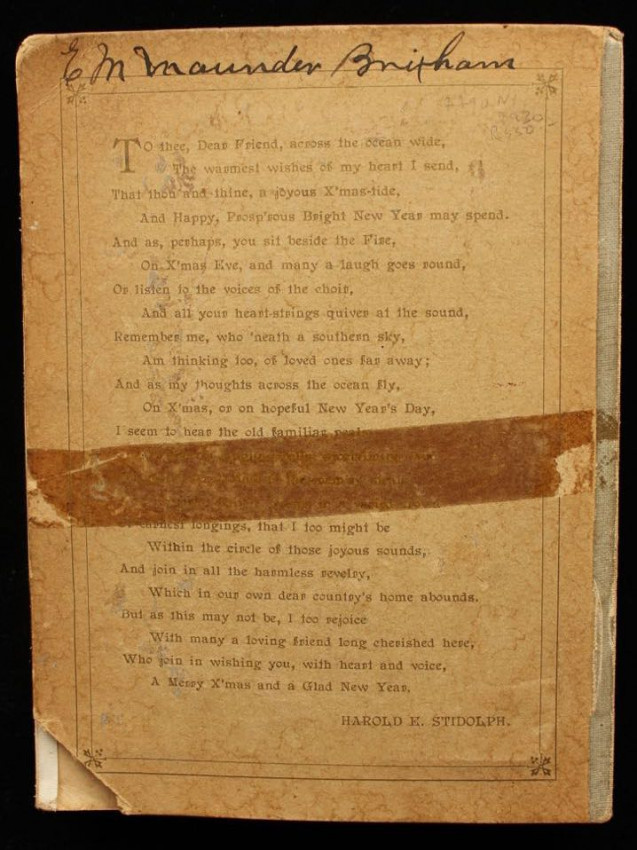 E M Maunder Brixham
TO thee, Dear Friend, across the ocean wide,
The warmest wishes of my heart I send,
That thou and thine, a joyous X'mas-tide,
And Happy, Prosp'rous Bright New Year may spend.
And as, perhaps, you sit beside the Fire,
On X'mas Eve, and many a laugh goes round,
Or listen to the voices of the choir,
And all your heart-strings quiver at the sound,
Remember me, who 'neath a southern sky,
Am thinking too, of loved ones far away;
And as my thoughts across the ocean fly,
On X'mas, or on hopeful New Year's Day,
I seem to hear the old familiar
Of earnest longings, that I too might be
Within the circle of those joyous sounds,
And join in all the harmless revelry,
Which in our own dear country's home abounds.
But as this may not be, I too rejoice
With many a loving friend long cherished here,
Who join in wishing you, with heart and voice,
A Merry X'mas and a Glad New Year,
HAROLD E. STIDOLPH.